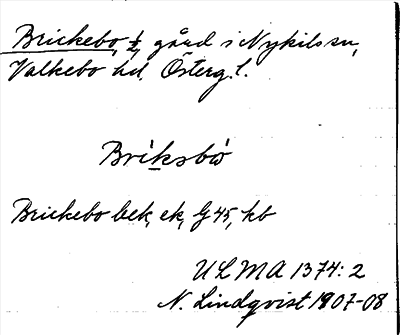 Brickebo, ½, gård i Nykils sn,
Valkebo hd. Österg. l.
Briksbo
Brickebo bek, ek, G 45, kb
ULMA 1374: 2
N. Lindqvist 1907-08